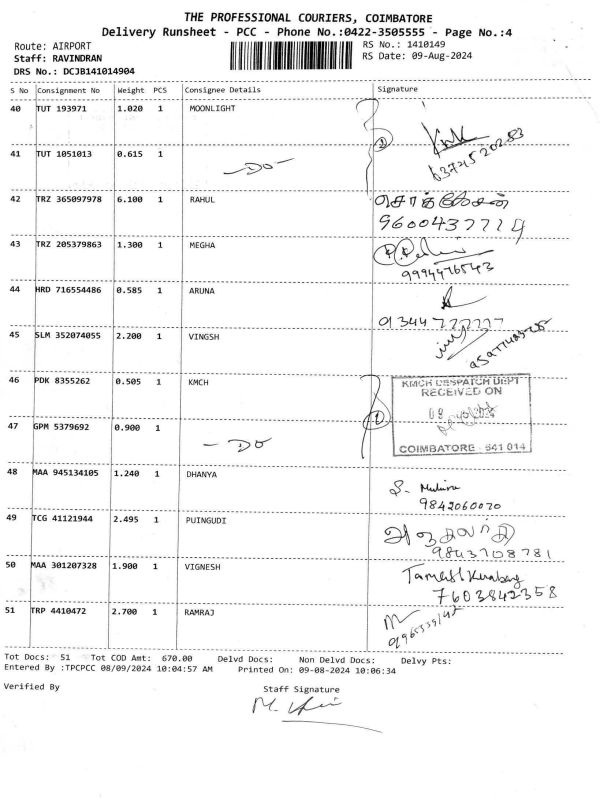 THE PROFESSIONAL COURIERS, COIMBATORE
Delivery Runsheet - PCC - Phone No.:0422-3505555 - Page No.:4
Route: AIRPORT RS No.: 1410149
Staff: RAVINDRAN RS Date: 09-Aug-2024
DRS No.: DCJB141014904
S No Consignment No Weight PCS Consignee Details Signature
40 TUT 193971 1.020 1 MOONLIGHT
41 TUT 1051013 0.615 1 -DO-
42 TRZ 365097978 6.100 1 RAHUL
9600437774
43 TRZ 205379863 1.300 1 MEGHA
9994476543
44 HRD 716554486 0.585 1 ARUNA
01344777777
45 SLM 352074055 2.200 1 VINGSH
46 PDK 8355262 0.505 1 KMCH KMCH DESPATCH DEPT
RECEIVED ON
47 GPM 5379692 0.900 1 -DO-
COIMBATORE - 641 014
48 MAA 945134105 1.240 1 DHANYA
9842060070
49 TCG 41121944 2.495 1 PUINGUDI
9843708781
50 MAA 301207328 1.900 1 VIGNESH
7603842358
51 TRP 4410472 2.700 1 RAMRAJ
Tot Docs: 51 Tot COD Amt: 670.00 Delvd Docs: Non Delvd Docs: Delvy Pts:
Entered By :TPCPCC 08/09/2024 10:04:57 AM Printed On: 09-08-2024 10:06:34
Verified By Staff Signature